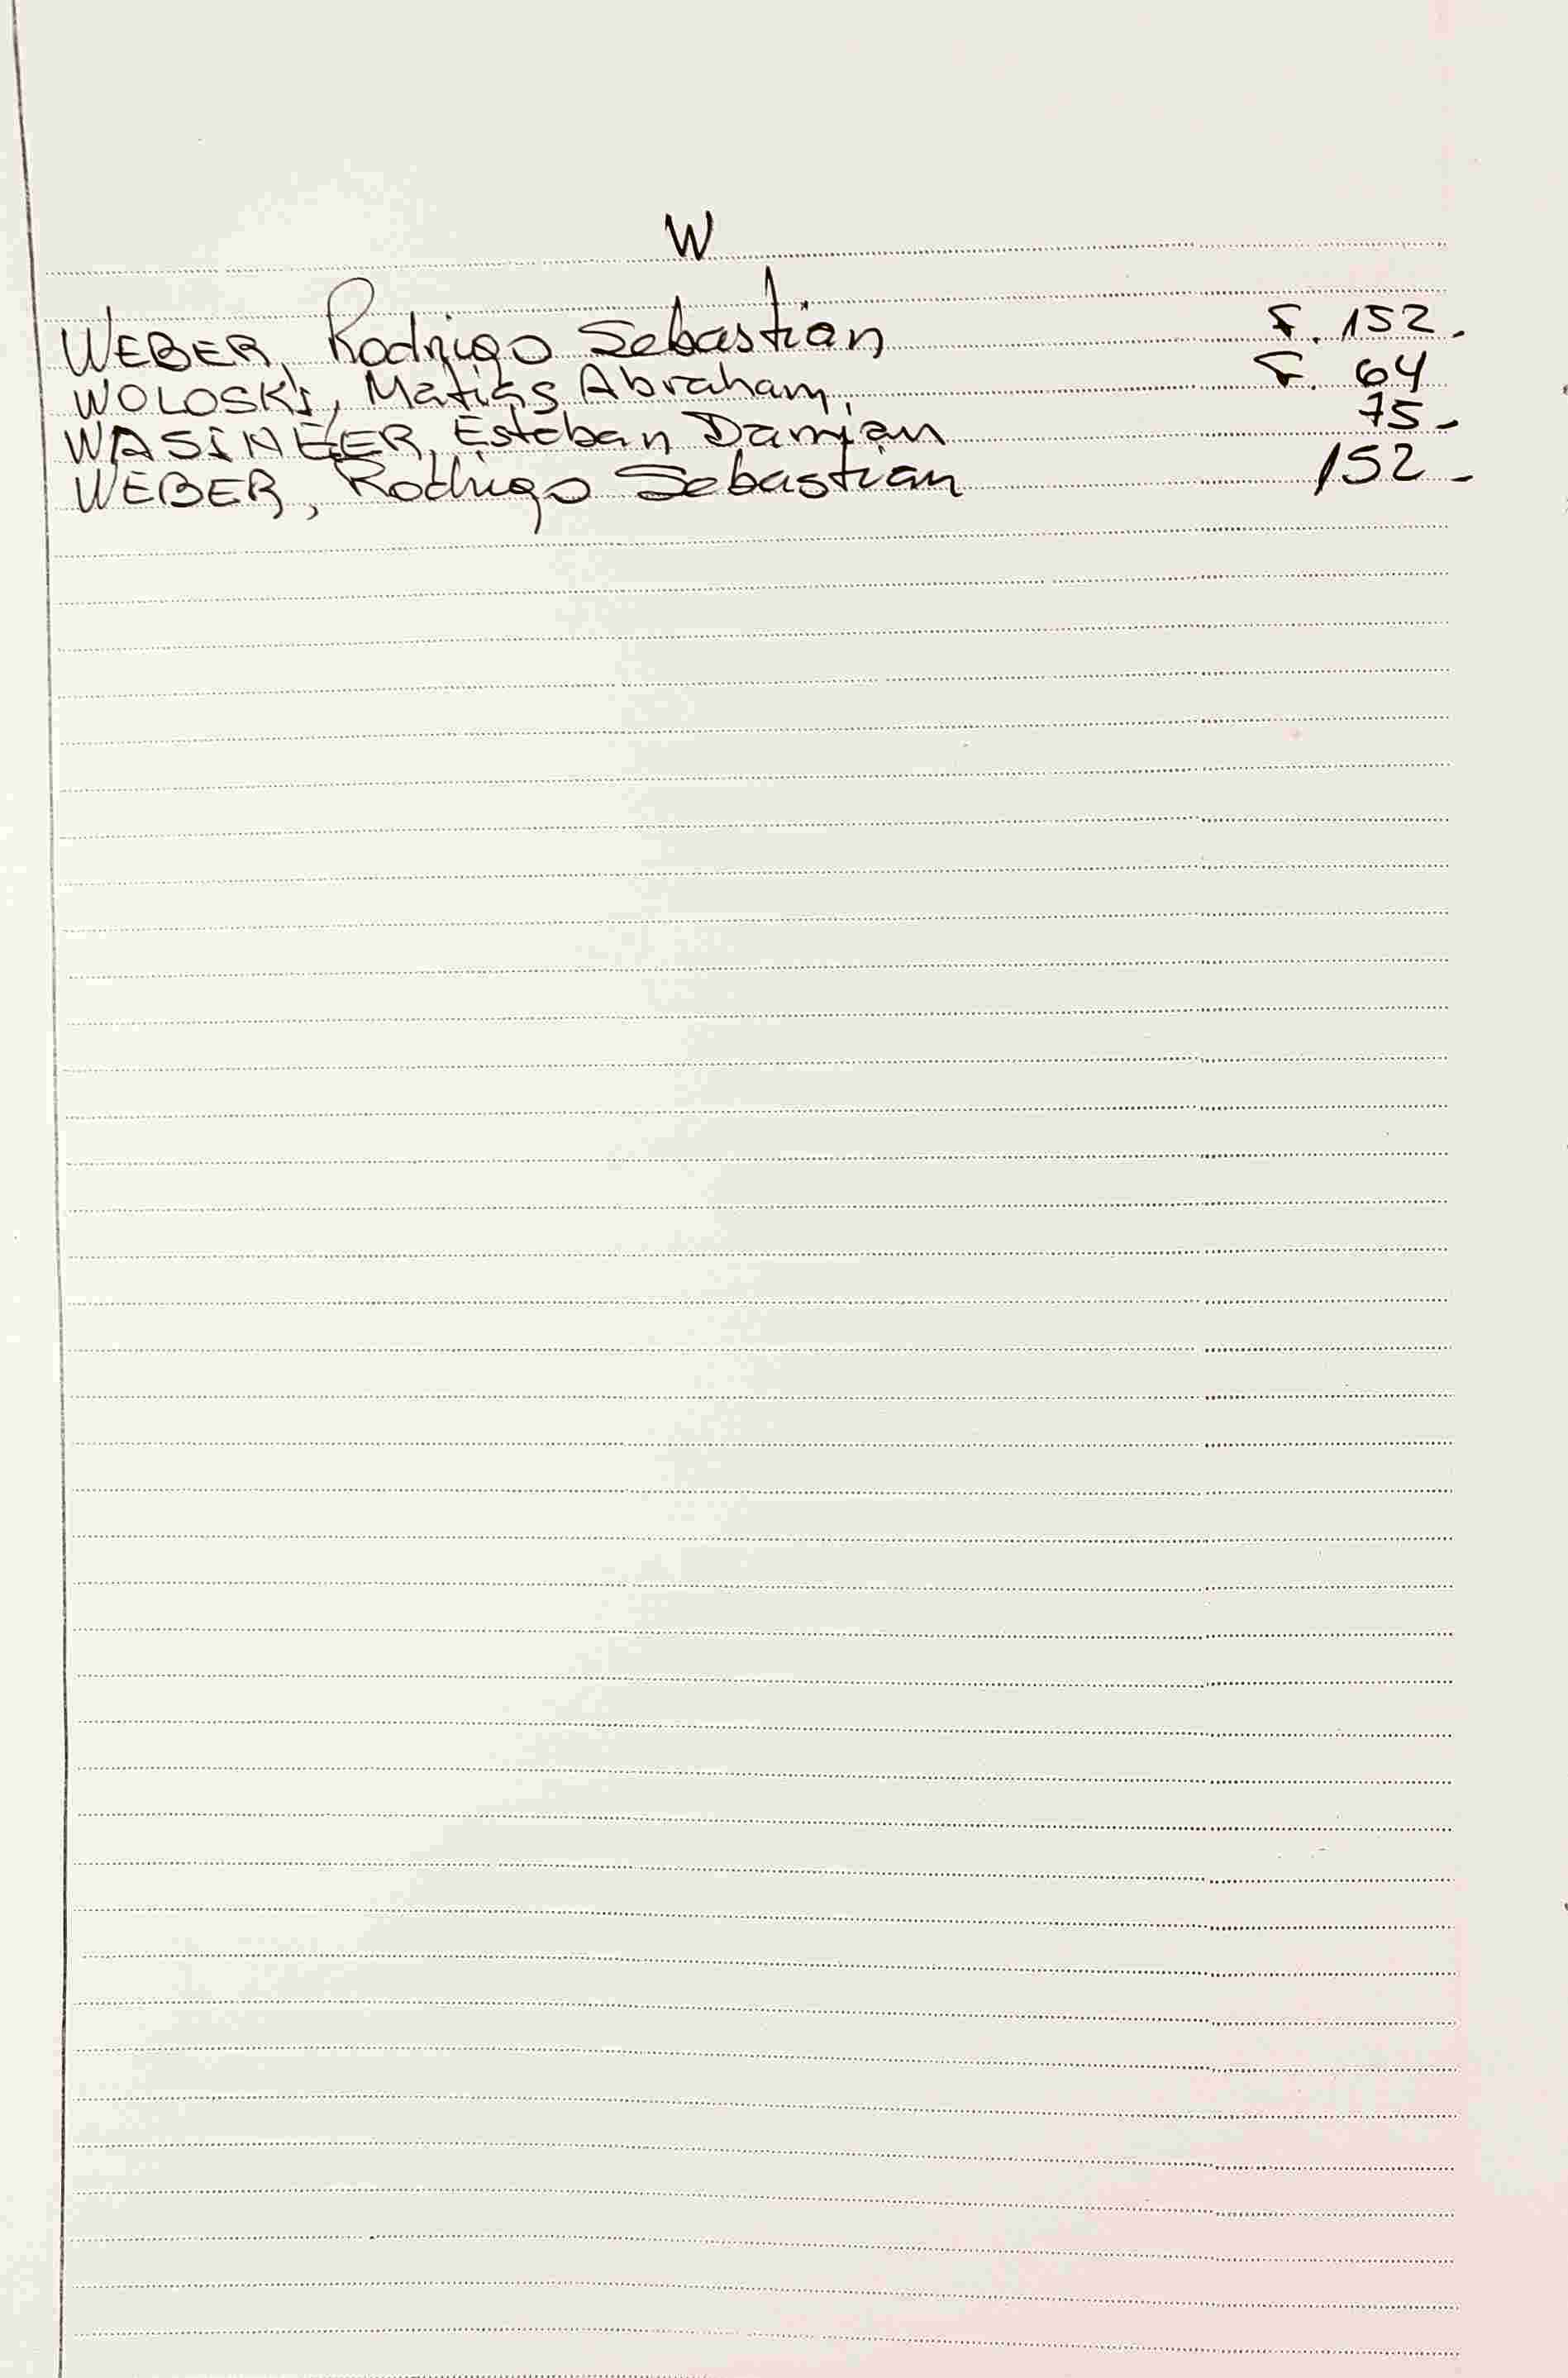 W
WEBER, Rodrigo Sebastián F. 152.
WOLOSKI, Matías Abraham, F. 64
WASINGER, Esteban Damián 75-
WEBER, Rodrigo Sebastián 152-